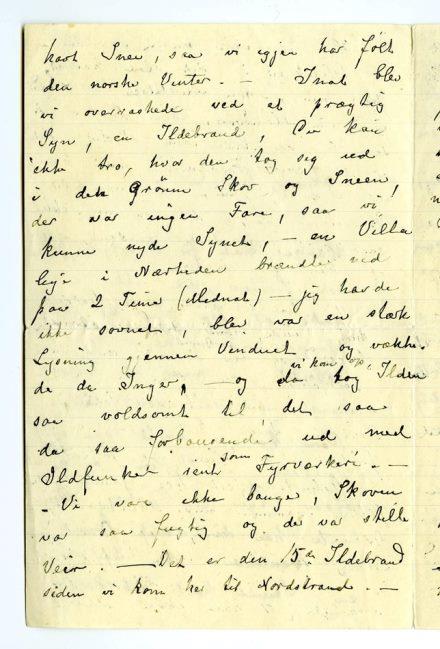 havt Snee, saa vi igjen har følt
den norske Vinter. — Inat blev
vi overraskede ved et prægtig
Syn, en Ildebrand, Du kan
ikke tro, hvor den tog sig ud
i den Grønne Skov og Sneen,
der var ingen Fare, saa vi
kunne nyde Synet, — en Villa
lige i Nærheden brændte ved
paa 2 Time (Midnat) — jeg havde
ikke sovnet, blev var en stærk
Lysning gjennem Vinduet og vække-
de da Inger, — og da vi kom op, tog Ilden
saa voldsomt til det saa
da saa forbausende ud med
Ildfunker rent som Fyrværkeri. —
- Vi vare ikke bange, Skoven
var saa fugtig og de var stille
Veir. — Det er den 15de Ildebrand
siden vi kom her til Nordstrand. —